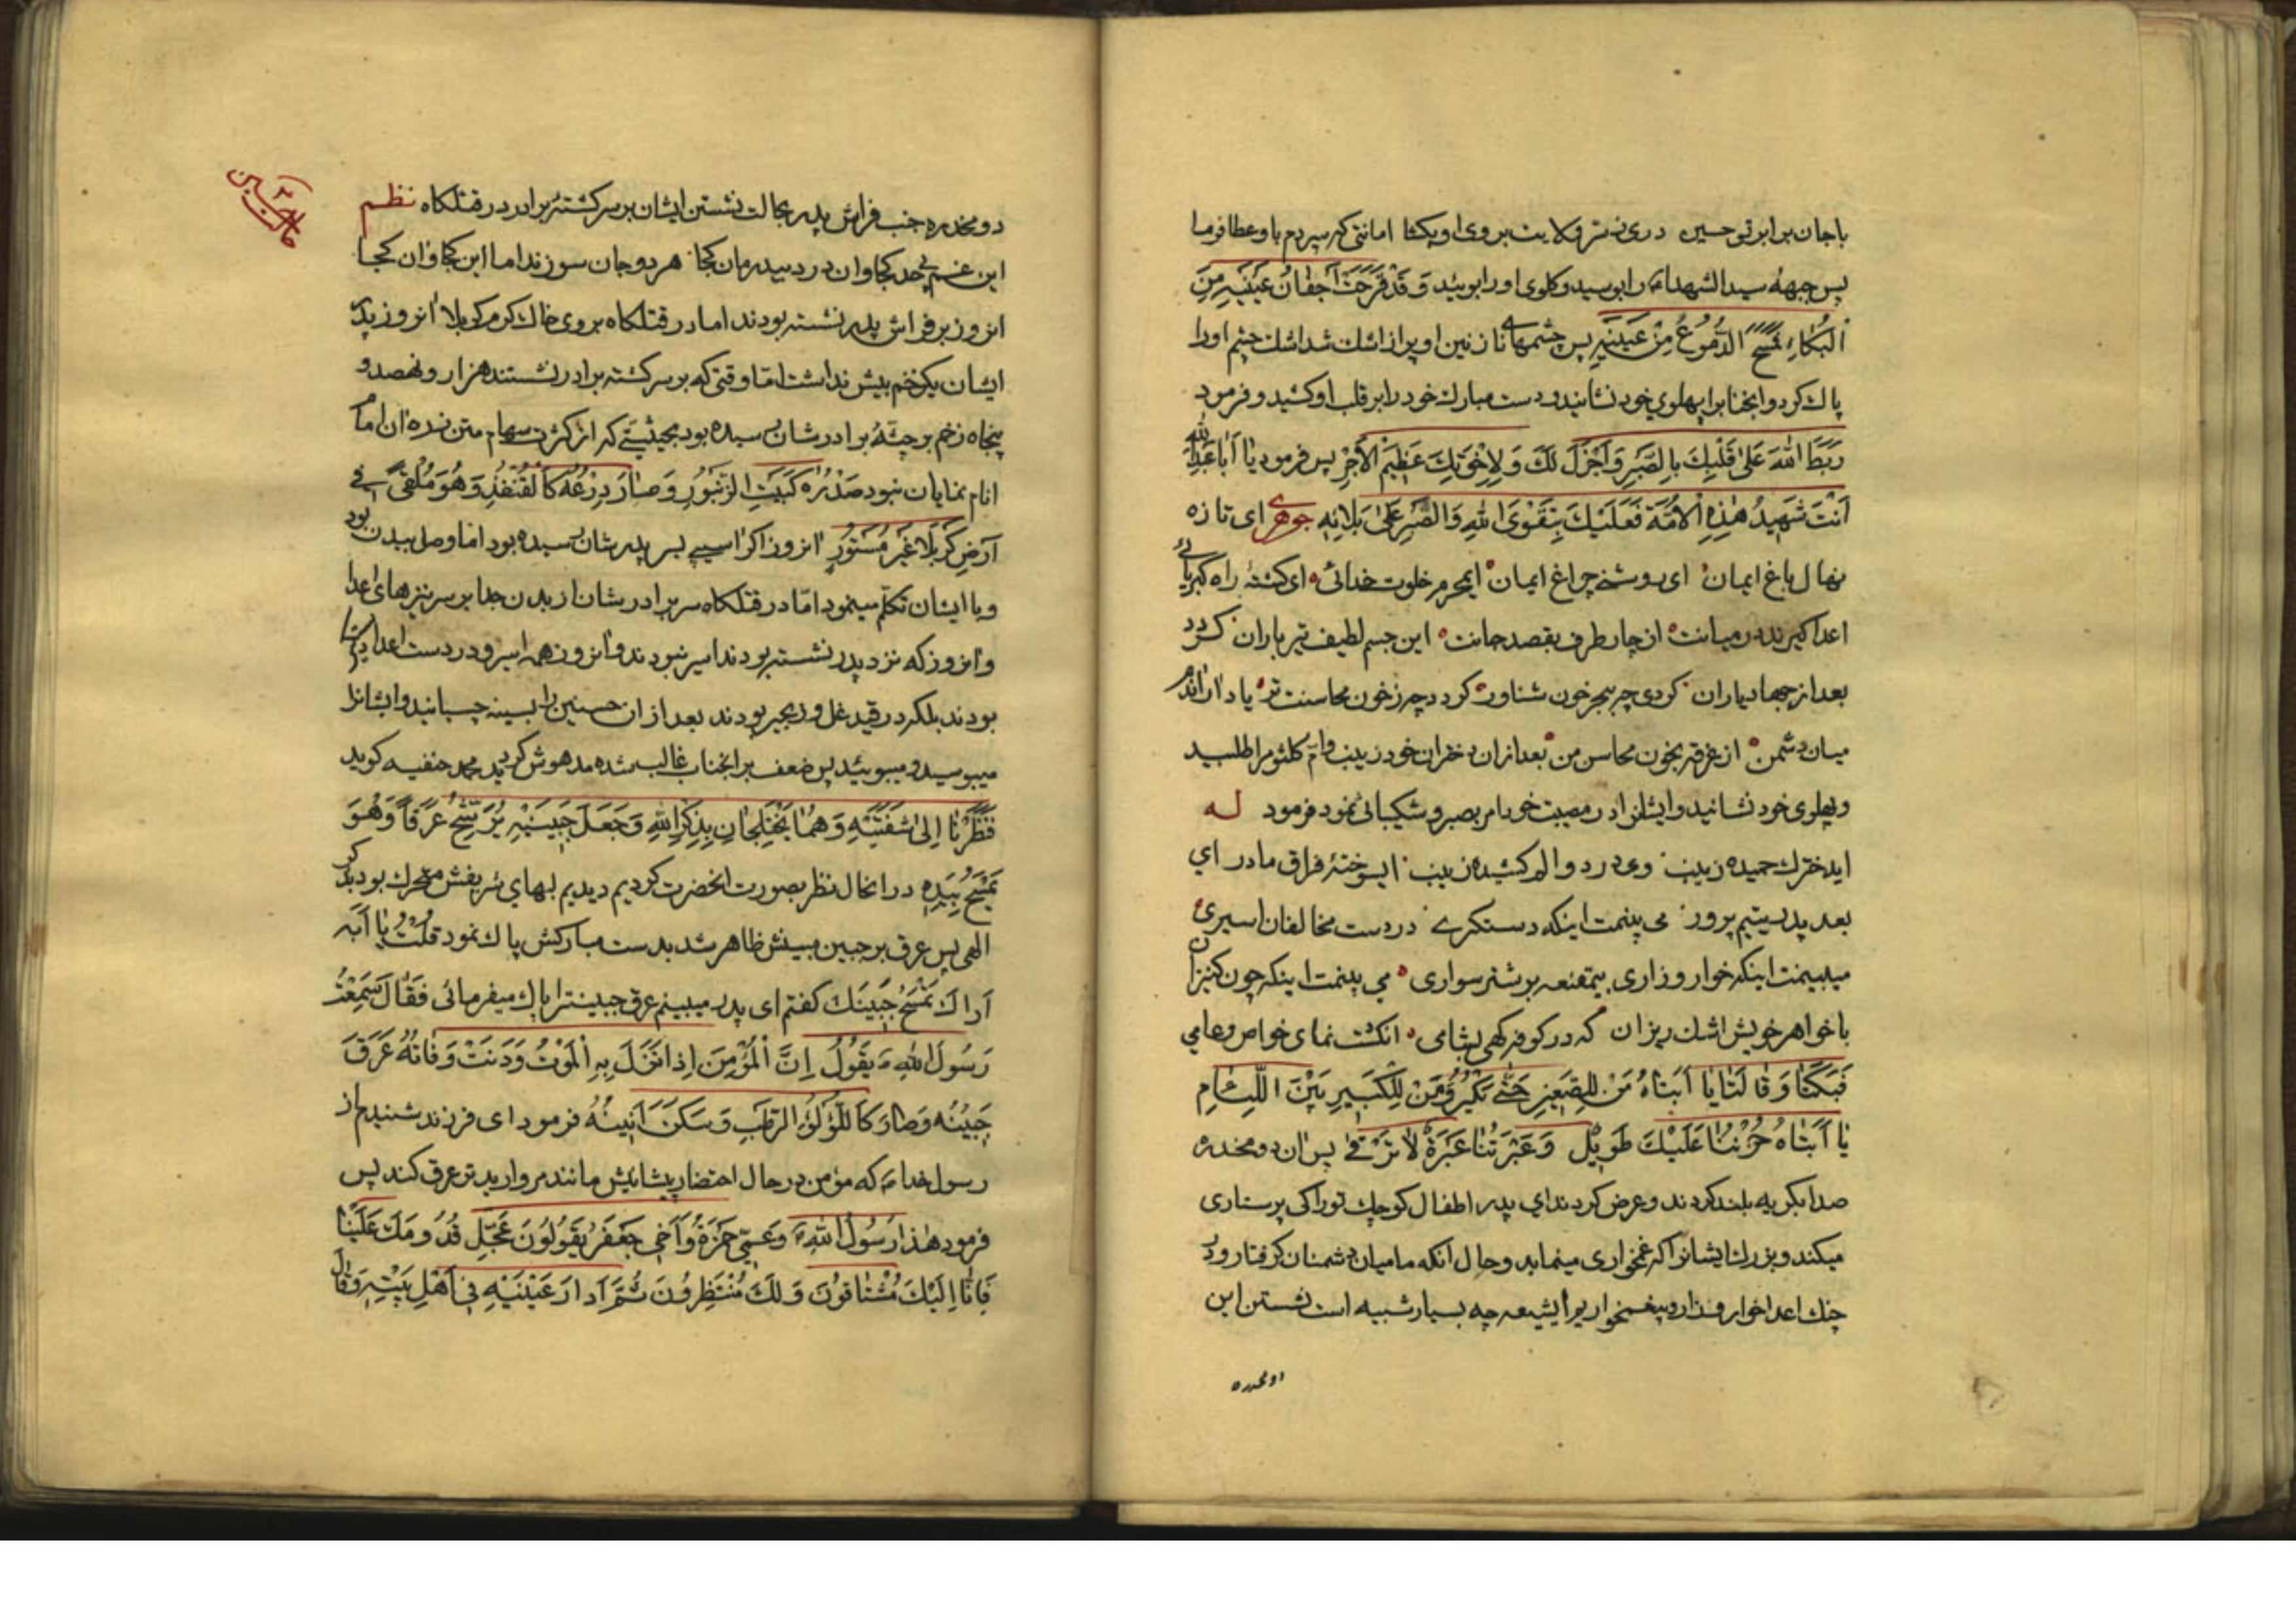 باجان برابر تو حسین دری ز شرفولایت بروی او بکشا امانتی که سپردم باو عطا فرما
پس جبههٔ سید الشهداء را بوسید و کلوی او را بوئید وَ قَدْ قَرَحَتْ اَجْفانُ عَیْنَیْهِ مِنَ
اَلْبُکاءِ فَمَسَحَ الدُّمُوعَ مِنْ عَیْنَیْهِ پس چشمهای نازنین او پر از اشک شد اشک چشم او را
پاک کرد و انجناب را بپهلوی خود نشانید و دست مبارک خود را بر قلب او کشید و فرمود
رَبَطَ اللهُ عَلیٰ قَلْبِکَ بِالصَّبْرِ وَ اَجْزَلَ لَکَ وَ لِاِخْوَتِکَ عَظِیمَ الْاَجْرِ پس فرمود یا اَباعَبْدِاللهِ
اَنْتَ شَهِیدُ هٰذِهِ الْاُمَّةِ فَعَلَیْکَ بِتَقْوَی اللهِ وَ الصَّبْرِ عَلیٰ بَلائِهِ جوهری ای تازه
نهال باغ ایمان ای روشنی چراغ ایمان ایمحرم خلوت خدائی ای کشتهٔ راه کبریائی
اعدا کیرند در میانت از چار طرف بقصد جانت این جسم لطیف تیر باران کردد
بعد از جهاد یاران کردی چه ببحر خون شناور کردد چه ز خون محاسنت تر یاد ار
میان دشمن از غرقه بخون محاسن من بعد از ان دختران خود زینب و ام کلثوم را طلبید
و پهلوی خود نشانید و ایشانرا در مصیبت خود امر بصبر و شکیبائی نمود فرمود له
ایدخترک حمیده زینب وی درد و الم کشیده زینب ایسوختهٔ فراق مادر ای
بعد پدر یتیم پرور می بینمت اینکه دستکری در دست مخالفان اسیری
میبینمت اینکه خوار و زاری بیمقنعه بر شتر سواری می بینمت اینکه چون کنیزان
با خواهر خویش اشک ریزان که در کوفه کهی بشامی انکشت نمای خواص و عامی
فَبَکَتا وَ قالَتا یا اَبَتاهُ مَنْ لِلصَّغِیرِ حَتّیٰ یَکْبُرَ وَ مَنْ لِلْکَبِیرِ بَیْنَ اللِّئامِ
یا اَبَتاهُ حُزْنُنا عَلَیْکَ طَوِیلٌ وَ عَبْرَتُنا عَبْرَةٌ لا تَرْقیٰ پس ان دو مخدره
صدا بکریه بلند کردند و عرض کردند ای پدر اطفال کوچک تو را کی پرستاری
میکند و بزرک ایشانرا که غمخواری مینماید و حال انکه ما میان دشمنان کرفتار و در
چنک اعدا خوار و زار و بیغمخواریم ایشیعه چه بسیار شبیه است نشستن این
دو مخدره
دو مخدره جنب فراش پدر بحالت نشستن ایشان بر سر کشتهٔ برادر در قتلکاه نظم
این غم بیحد کجا و ان درد بیدرمان کجا هر دو جان سوزند اما این کجا و ان کجا
انروز بر فراش پدر نشسته بودند اما در قتلکاه بر روی خاک کرم کربلا انروز پدر
ایشان یکزخم بیش نداشت امّا وقتی که بر سر کشته برادر نشستند هزار و نهصد و
پنجاه زخم بر جثّهٔ برادرشان رسیده بود بحیثیّتی که از کثرت سهام متن نده ان امام
انام نمایان نبود صَدْرُهُ کَبَیْتِ الزُّنْبُورِ وَ صارَ دِرْعُهُ کَالْقُنْفُذِ وَ هُوَ مُلْقیً فی
اَرْضِ کَرْبَلا غَیْرَ مَسْتُورٍ انروز اکر اسیبی بسر پدرشان رسیده بود اما وصل ببدن بود
و با ایشان تکلّم مینمود امّا در قتلکاه سر برادرشان از بدن جدا بر سر نیزهای اعدا
و انروز که نزد پدر نشسته بودند اسیر نبودند و انروز همه اسیر و در دست اعدا
بودند بلکه در قید غل و زنجیر بودند بعد از ان حسنین را بسینه چسبانید و ایشانرا
میبوسید و میبوئید پس ضعف بر انجناب غالب شده مدهوش کردید محمد حنفیه کوید
فَنَظَرْنا اِلیٰ شَفَتَیْهِ وَ هُما یَخْتَلِجانِ بِذِکْرِ اللهِ وَ جَعَلَ جَبِینَیْهِ یَرْشَحُ عَرَقاً وَ هُوَ
یَمْسَحُ بِیَدِهِ در انحال نظر بصورت انحضرت کردیم دیدیم لبهای شریفش متحرک بود بذکر
الهی پس عرق بر جبین مبینش ظاهر شد بدست مبارکش پاک نمود قُلْتُ یا اَبَه
اَراکَ تَمْسَحُ جَبِینَکَ کفتم ای پدر میبینم عرق جبینترا پاک میفرمائی فَقالَ سَمِعْتُ
رَسُولَ اللهِ یَقُولُ اِنَّ الْمُؤْمِنَ اِذا نَزَلَ بِهِ الْمَوْتُ وَ دَنَتْ وَفاتُهُ عَرَقَ
جَبِینُهُ وَ صارَ کَاللُّؤْلُؤِ الرَّطْبِ وَ سَکَنَ اَنِینُهُ فرمود ای فرزند شنیدم از
رسول خدا که مؤمن در حال احتضار پیشانیش مانند مروارید تر عرق کند پس
فرمود هٰذا رَسُولُ اللهِ وَ عَمّی حَمْزَةُ وَ اَخی جَعْفَرُ یَقُولُونَ عَجِّلْ قُدُومَکَ عَلَیْنا
فَاِنّا اِلَیْکَ مُشْتاقُونَ وَ لَکَ مُنْتَظِرُونَ ثُمَّ اَدارَ عَیْنَیْهِ فی اَهْلِ بَیْتِهِ وَ قالَ